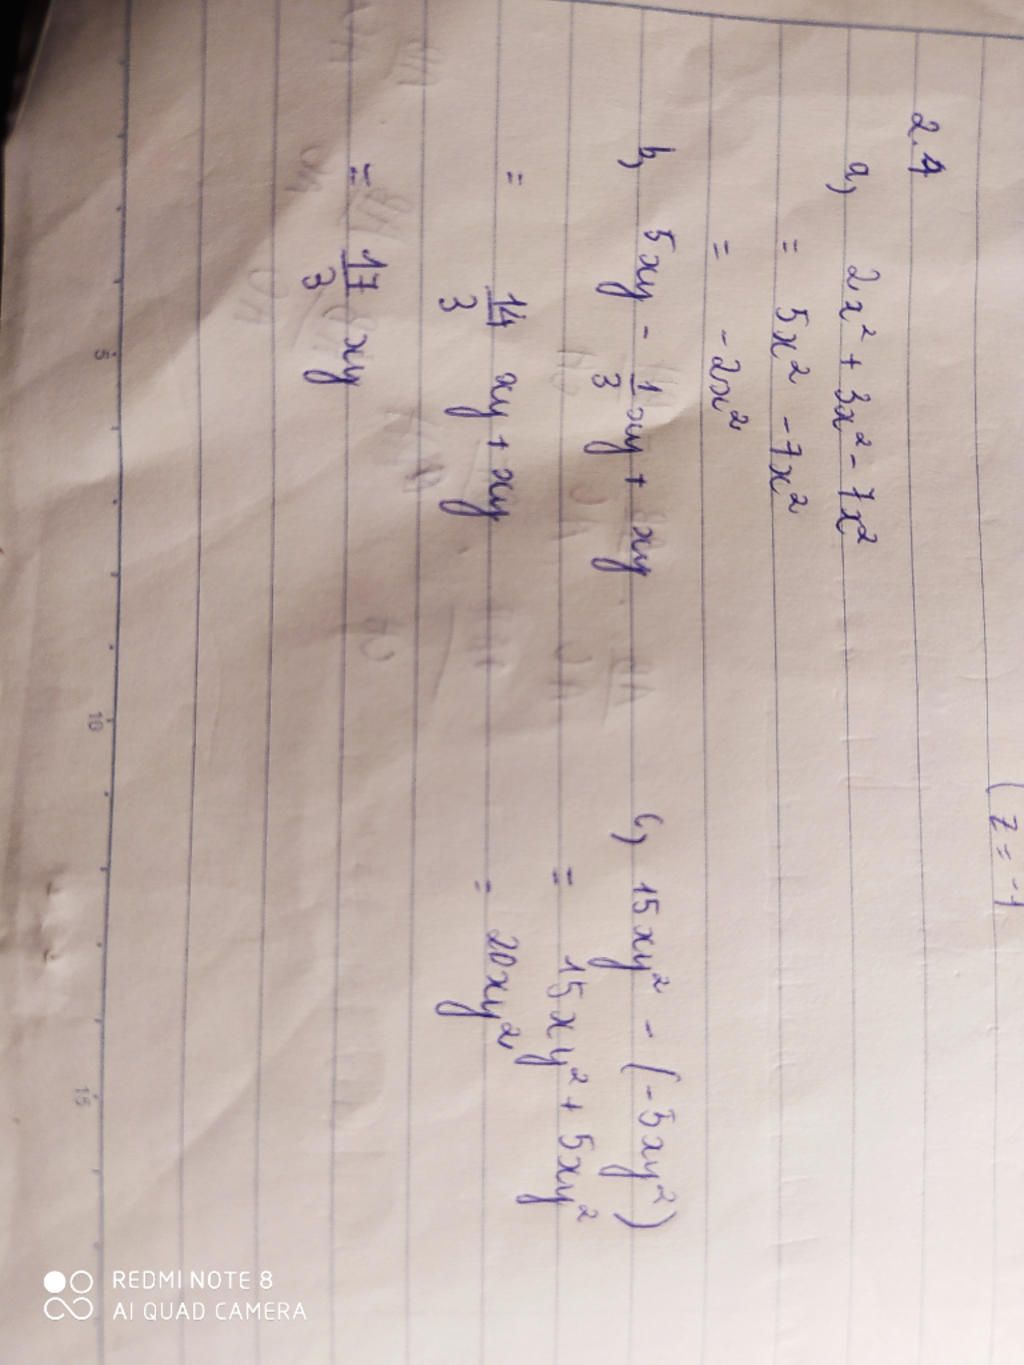 (z = -1
2.4
a) 2x² + 3x² - 7x²
= 5x² - 7x²
= -2x²
b) 5xy - 1/3 xy + xy
= 14/3 xy + xy
= 17/3 xy
c) 15xy² - (-5xy²)
= 15xy² + 5xy²
= 20xy²
5
10
15
REDMI NOTE 8
AI QUAD CAMERA